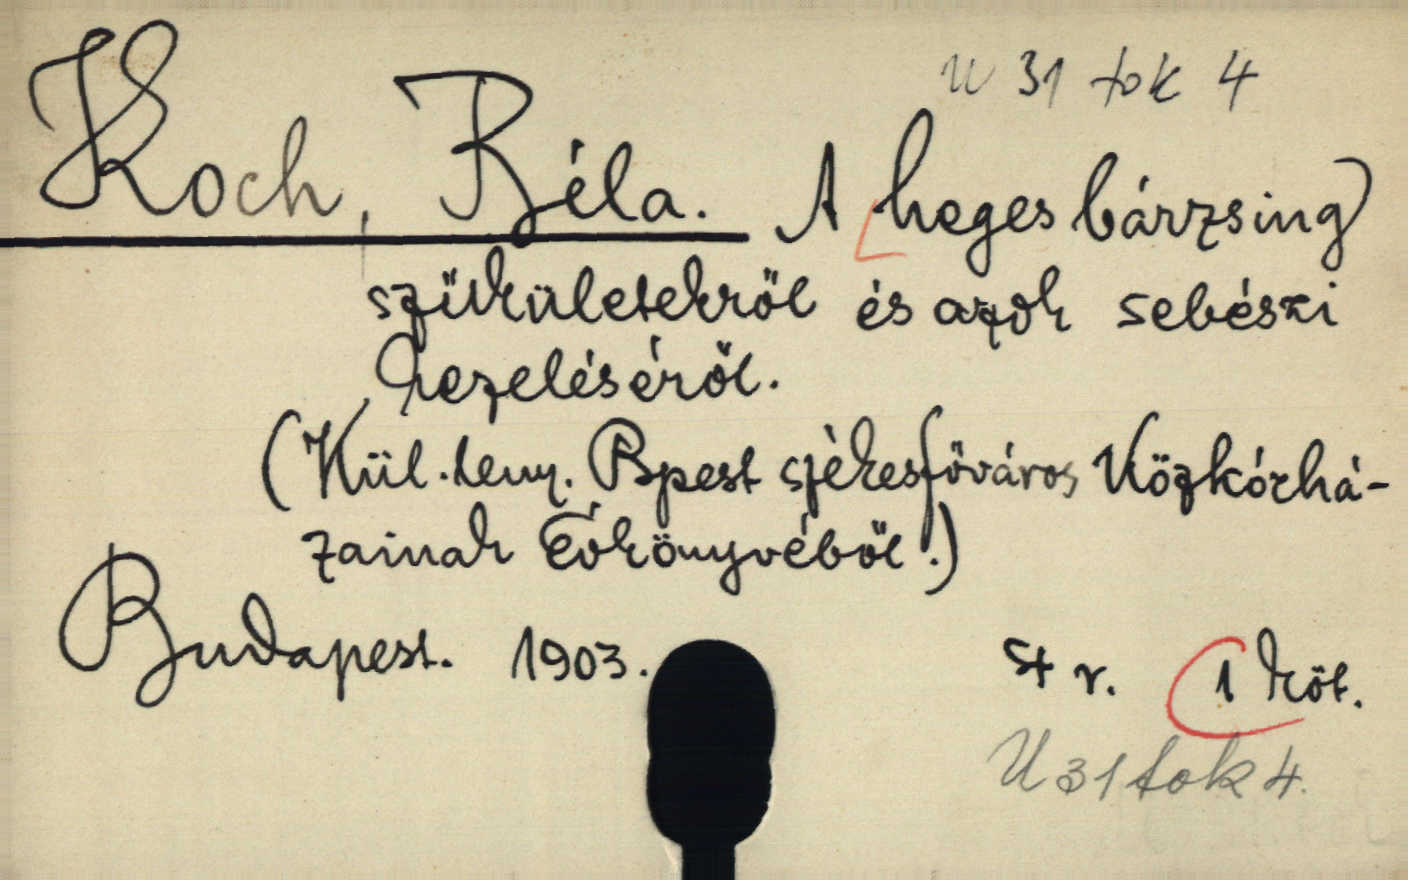 U 31 tok 4
Koch, Béla. A heges bárzsing
szűkületekről és azok sebészi
kezeléséről.
(Kül. leny. Bpest székesfőváros Közkórhá-
zainak Évkönyvéből.)
Budapest. 1903.
4 r. 1 köt.
U 31 tok 4.